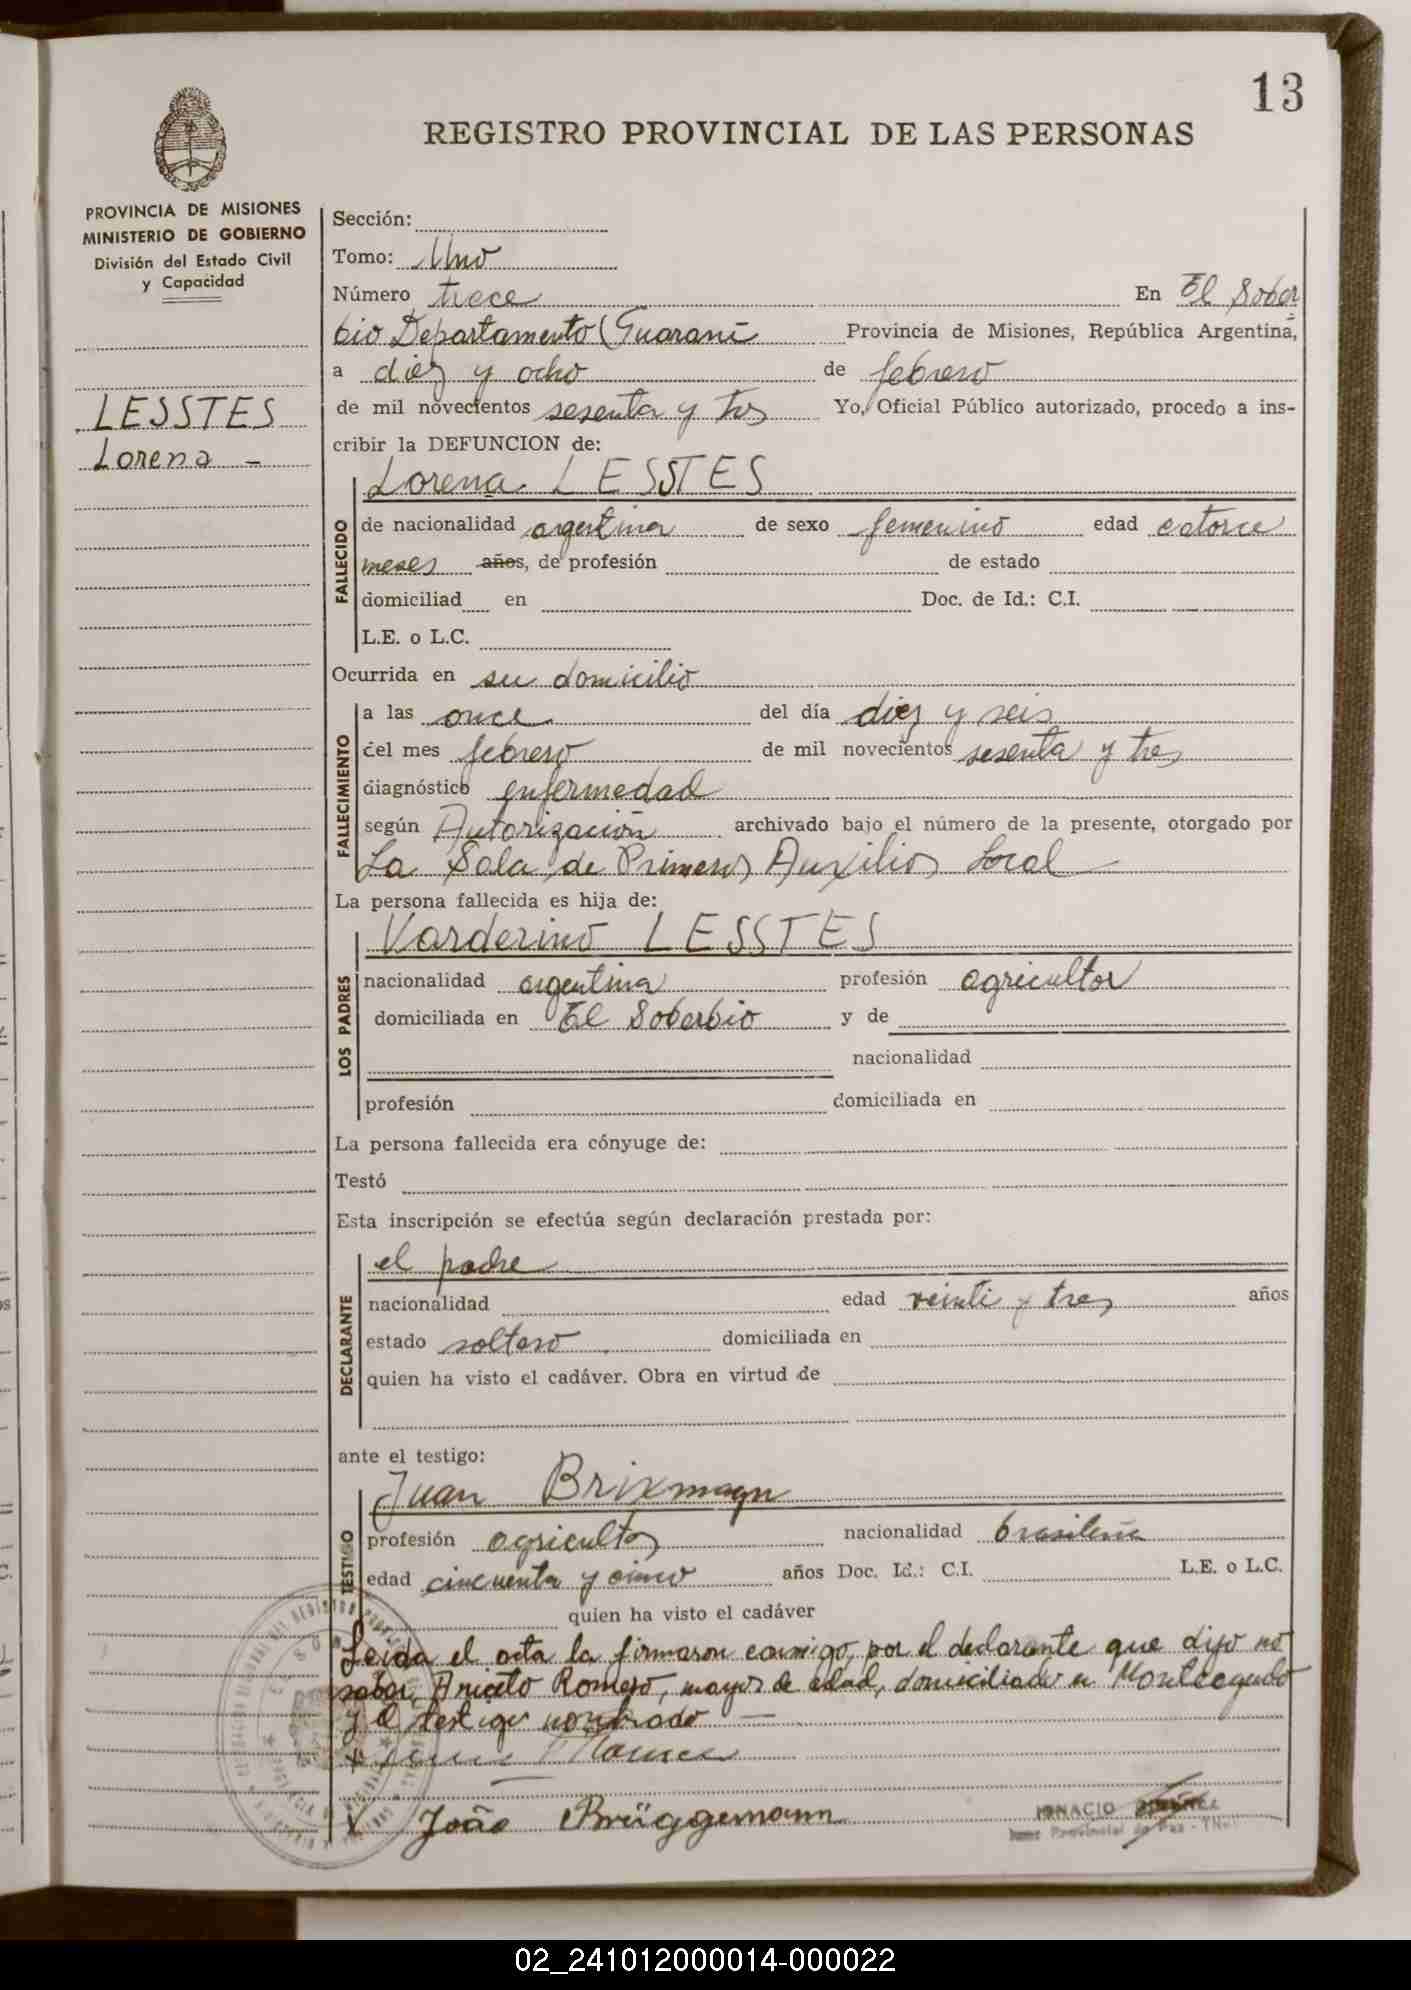 13
REGISTRO PROVINCIAL DE LAS PERSONAS
PROVINCIA DE MISIONES
MINISTERIO DE GOBIERNO
División del Estado Civil
y Capacidad
LESSTES
Lorena -
Sección:
Tomo: Uno
Número trece En El Sober
bio Departamento Guaraní Provincia de Misiones, República Argentina,
a diez y ocho de febrero
de mil novecientos sesenta y tres Yo, Oficial Público autorizado, procedo a ins-
cribir la DEFUNCION de:
Lorena LESSTES
FALLECIDO
de nacionalidad argentina de sexo femenino edad catorce
meses años, de profesión de estado
domiciliad en Doc. de Id.: C.I.
L.E. o L.C.
Ocurrida en su domicilio
FALLECIMIENTO
a las once del día diez y seis
del mes febrero de mil novecientos sesenta y tres
diagnóstico enfermedad
según Autorización archivado bajo el número de la presente, otorgado por
La Sala de Primeros Auxilios Local
La persona fallecida es hija de:
Varderino LESSTES
LOS PADRES
nacionalidad argentina profesión agricultor
domiciliada en El Soberbio y de
nacionalidad
profesión domiciliada en
La persona fallecida era cónyuge de:
Testó
Esta inscripción se efectúa según declaración prestada por:
el padre
DECLARANTE
nacionalidad edad veinti y tres años
estado soltero domiciliada en
quien ha visto el cadáver. Obra en virtud de
ante el testigo:
Juan Brixmayn
TESTIGO
profesión agricultor nacionalidad brasileña
edad cincuenta y cinco años Doc. Id.: C.I. L.E. o L.C.
quien ha visto el cadáver
Leida el acta la firmaron conmigo, por el declarante que dijo no
saber, Aniceto Romero, mayor de edad, domiciliado en Monteagudo
y el testigo nombrado
João Brüggemann
IGNACIO
Provincial de Paz
02_241012000014-000022